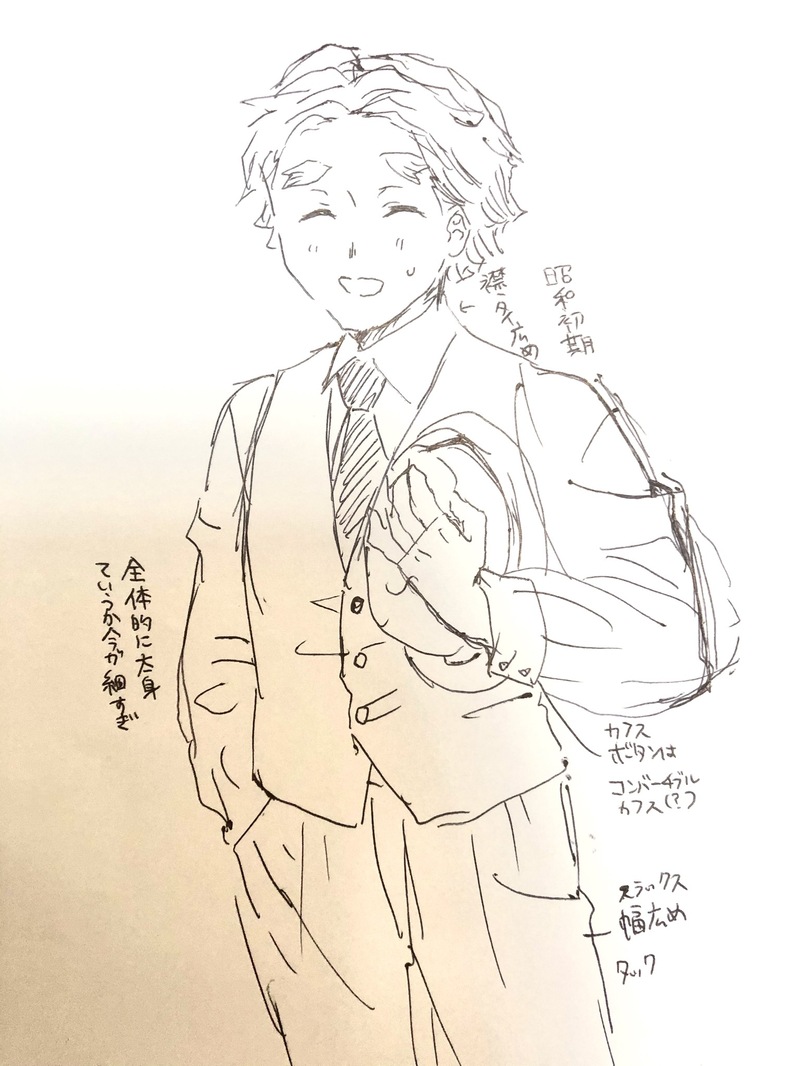 昭和初期
襟・タイ広め
全体的に太身
ていうか今が細すぎ
カフス
ボタンは
コンバーチブル
カフス(?)
スラックス
幅広め
タック